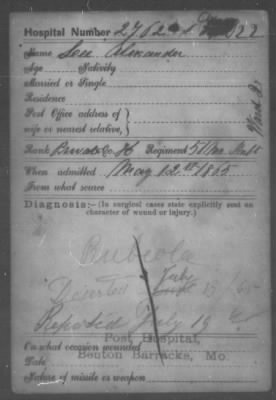 Hospital Number 2762
Name Lee Alexander
Age Nativity
Married or Single
Residence
Post Office address of
wife or nearest relative,
Rank Private Co. H Regiment 51 Mo
When admitted May 12th 1865
From what source
Diagnosis:—(In surgical cases state explicitly seat and
character of wound or injury.)
Rubeola
Deserted July 19
Reported July 19
Post Hospital,
On what occasion wounded
Benton Barracks, Mo.
Date
Nature of missile or weapon
Ward